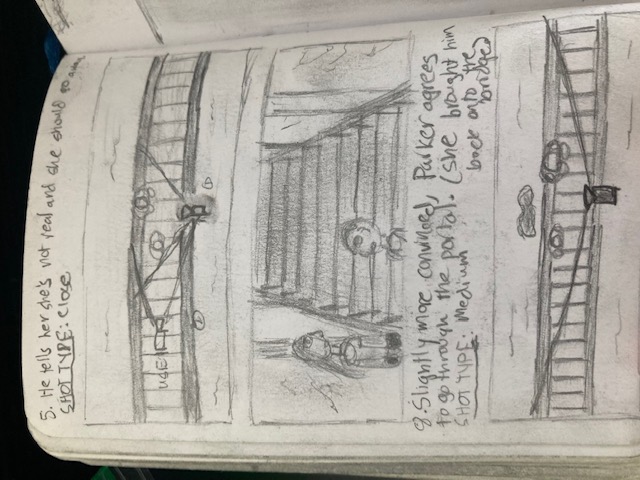 5. He tells her she's not real and she should go away
SHOT TYPE: close
USE
②
①
8. Slightly more convinced, Parker agrees
to go through the portal. (she brought him
back onto the
bridge)
SHOT TYPE: Medium